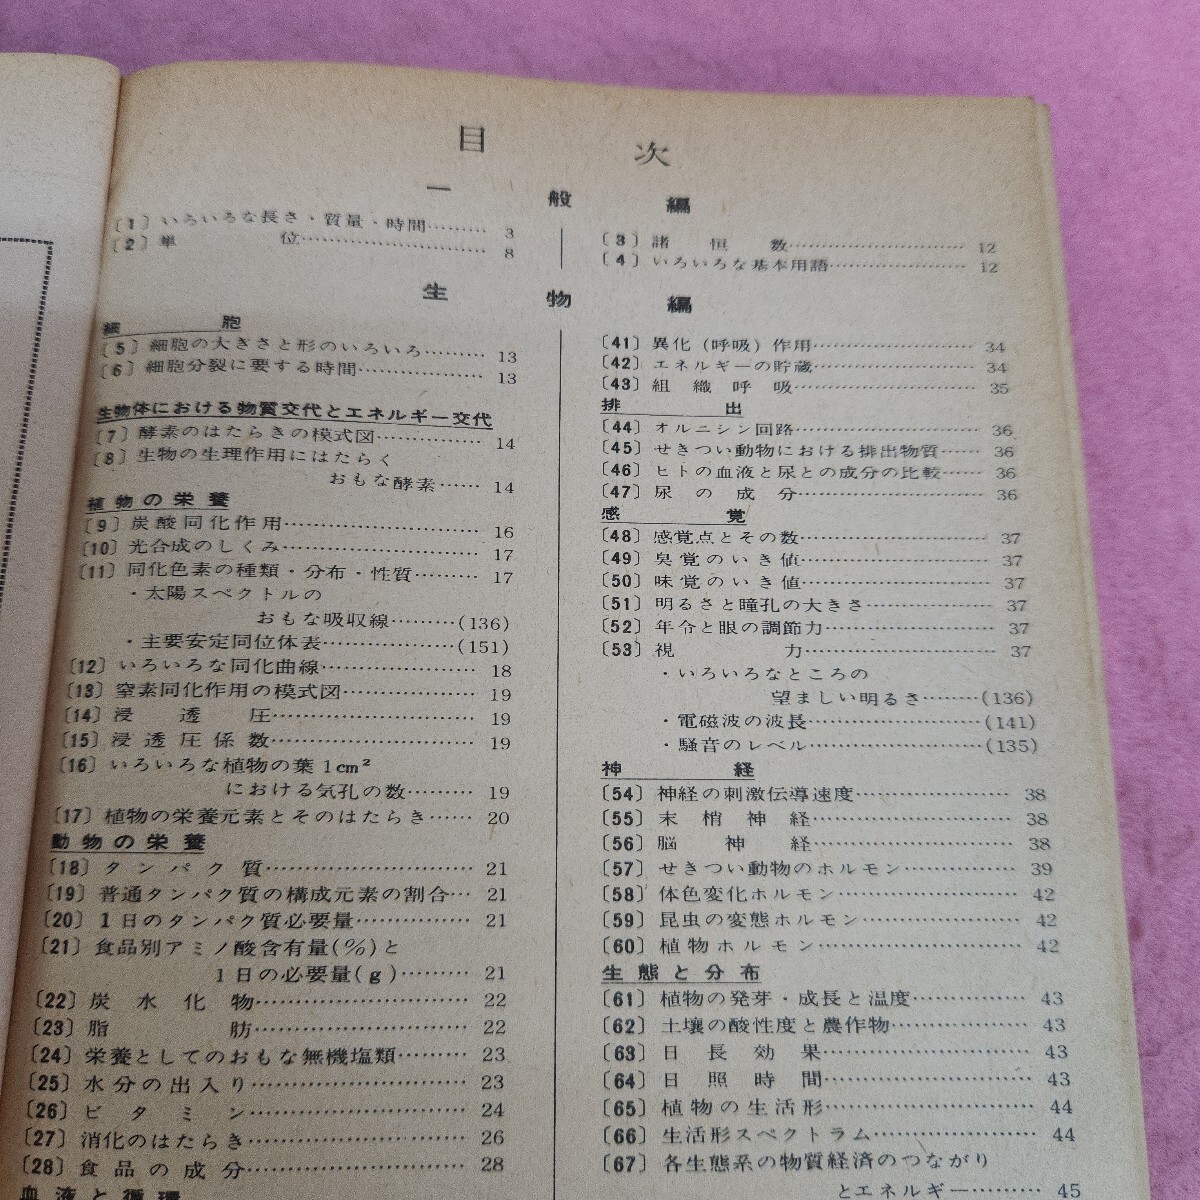 目次
一般編
〔1〕いろいろな長さ・質量・時間……… 3
〔2〕単位……………………… 8
〔3〕諸恒数……………………… 12
〔4〕いろいろな基本用語………………… 12
生物編
細胞
〔5〕細胞の大きさと形のいろいろ……… 13
〔6〕細胞分裂に要する時間……………… 13
生物体における物質交代とエネルギー交代
〔7〕酵素のはたらきの模式図…………… 14
〔8〕生物の生理作用にはたらく
おもな酵素…… 14
植物の栄養
〔9〕炭酸同化作用……………………… 16
〔10〕光合成のしくみ……………………… 17
〔11〕同化色素の種類・分布・性質……… 17
・太陽スペクトルの
おもな吸収線………(136)
・主要安定同位体表………………(151)
〔12〕いろいろな同化曲線………………… 18
〔13〕窒素同化作用の模式図……………… 19
〔14〕浸透圧……………………… 19
〔15〕浸透圧係数……………………… 19
〔16〕いろいろな植物の葉1cm²
における気孔の数……… 19
〔17〕植物の栄養元素とそのはたらき…… 20
動物の栄養
〔18〕タンパク質……………………… 21
〔19〕普通タンパク質の構成元素の割合… 21
〔20〕1日のタンパク質必要量…………… 21
〔21〕食品別アミノ酸含有量(%)と
1日の必要量(g)……… 21
〔22〕炭水化物……………………… 22
〔23〕脂肪……………………… 22
〔24〕栄養としてのおもな無機塩類……… 23
〔25〕水分の出入り……………………… 23
〔26〕ビタミン……………………… 24
〔27〕消化のはたらき……………………… 26
〔28〕食品の成分……………………… 28
血液と循環
〔41〕異化(呼吸)作用………………… 34
〔42〕エネルギーの貯蔵………………… 34
〔43〕組織呼吸……………………… 35
排出
〔44〕オルニシン回路……………………… 36
〔45〕せきつい動物における排出物質…… 36
〔46〕ヒトの血液と尿との成分の比較…… 36
〔47〕尿の成分……………………… 36
感覚
〔48〕感覚点とその数……………………… 37
〔49〕臭覚のいき値……………………… 37
〔50〕味覚のいき値……………………… 37
〔51〕明るさと瞳孔の大きさ……………… 37
〔52〕年令と眼の調節力…………………… 37
〔53〕視力……………………… 37
・いろいろなところの
望ましい明るさ………(136)
・電磁波の波長……………………(141)
・騒音のレベル……………………(135)
神経
〔54〕神経の刺激伝導速度………………… 38
〔55〕末梢神経……………………… 38
〔56〕脳神経……………………… 38
〔57〕せきつい動物のホルモン…………… 39
〔58〕体色変化ホルモン…………………… 42
〔59〕昆虫の変態ホルモン………………… 42
〔60〕植物ホルモン……………………… 42
生態と分布
〔61〕植物の発芽・成長と温度…………… 43
〔62〕土壌の酸性度と農作物……………… 43
〔63〕日長効果……………………… 43
〔64〕日照時間……………………… 43
〔65〕植物の生活形……………………… 44
〔66〕生活形スペクトラム………………… 44
〔67〕各生態系の物質経済のつながり
とエネルギー……… 45